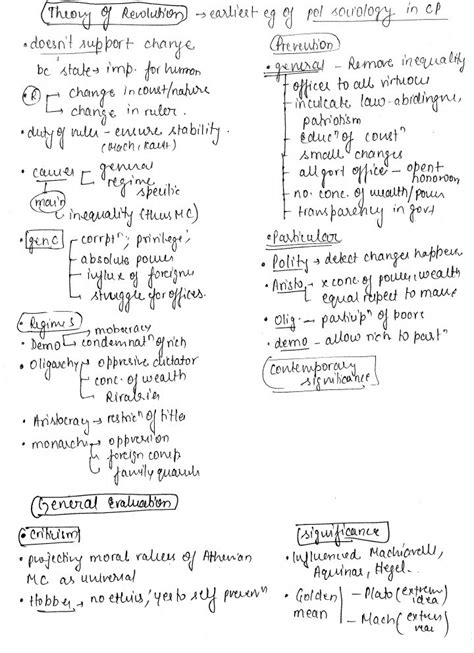 Theory of Revolution → earliest eg of pol sociology in CP
• doesn't support change
bc 'state → imp. for human
• R change in const/nature
change in ruler.
• duty of ruler - ensure stability.
• causes general
regime
specific
main
inequality (thus MC)
• gen C corrptn, privilege,
absolute power
influx of foreigne
struggle for offices.
• Regime S
mobocracy
• Demo condemnatn of rich
• Oligarchy → oppresive dictator
conc. of wealth
Rivalries
• Aristocracy → restricn of titles
• monarchy → oppresion
foreign consp
family quarrels
Prevention
• general - Remove inequality
offices to all virtuous
inculcate law-abidingne,
patriotism
educn of constn
small changes
all govt office - open t
no. conc. of wealth/power
transparency in govt
• Particular
• Polity → detect changes happen
• Aristo → x conc of power, wealth
equal respect to
• Olig. - particip of poors
• demo - allow rich to partn
Contemporary
significance
General Evaluation
• Criticism
• projecting moral values of Athenian
MC as universal
• Hobbes → no ethics, 'yes to self preservn
significance
• Influenced Machiavelli,
Aquinas, Hegel.
• Golden mean
Plato (extrem idea)
Mach (extrem rea